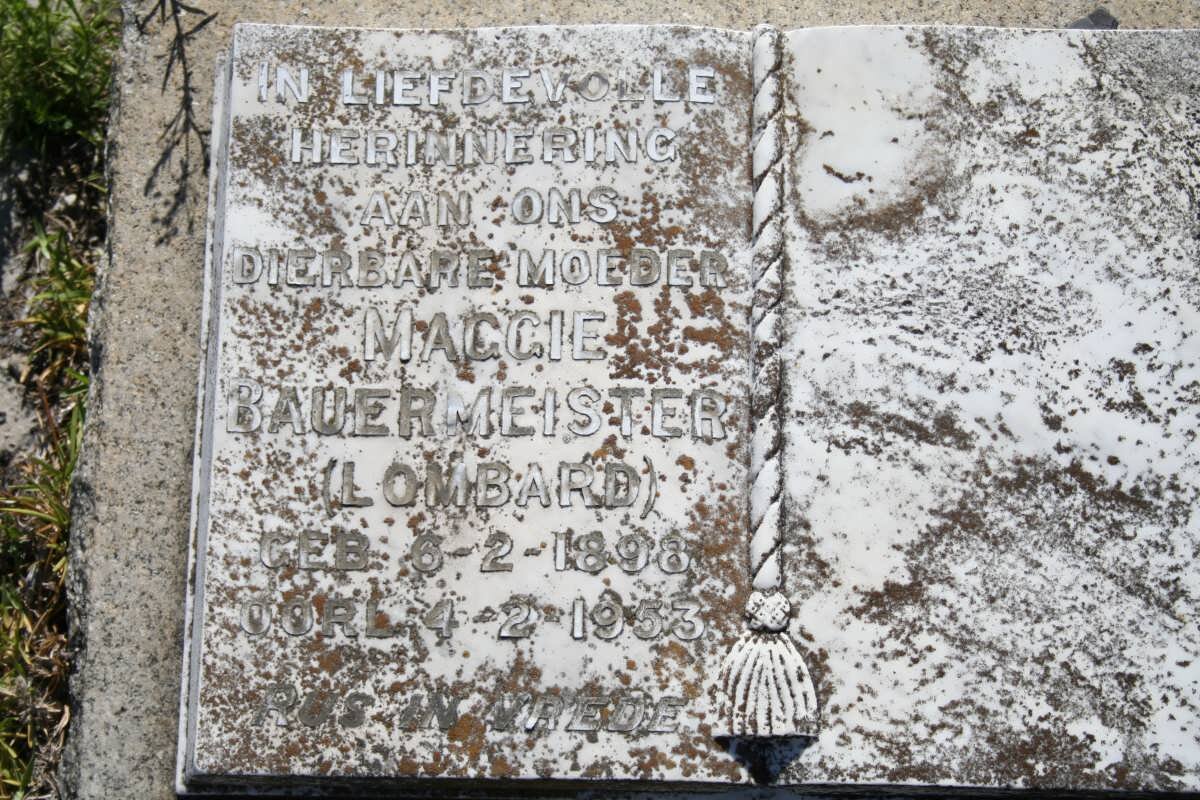 IN LIEFDEVOLLE
HERINNERING
AAN ONS
DIERBARE MOEDER
MAGGIE
BAUERMEISTER
(LOMBARD)
GEB 6-2-1898
OORL 4-2-1953
RUS IN VREDE